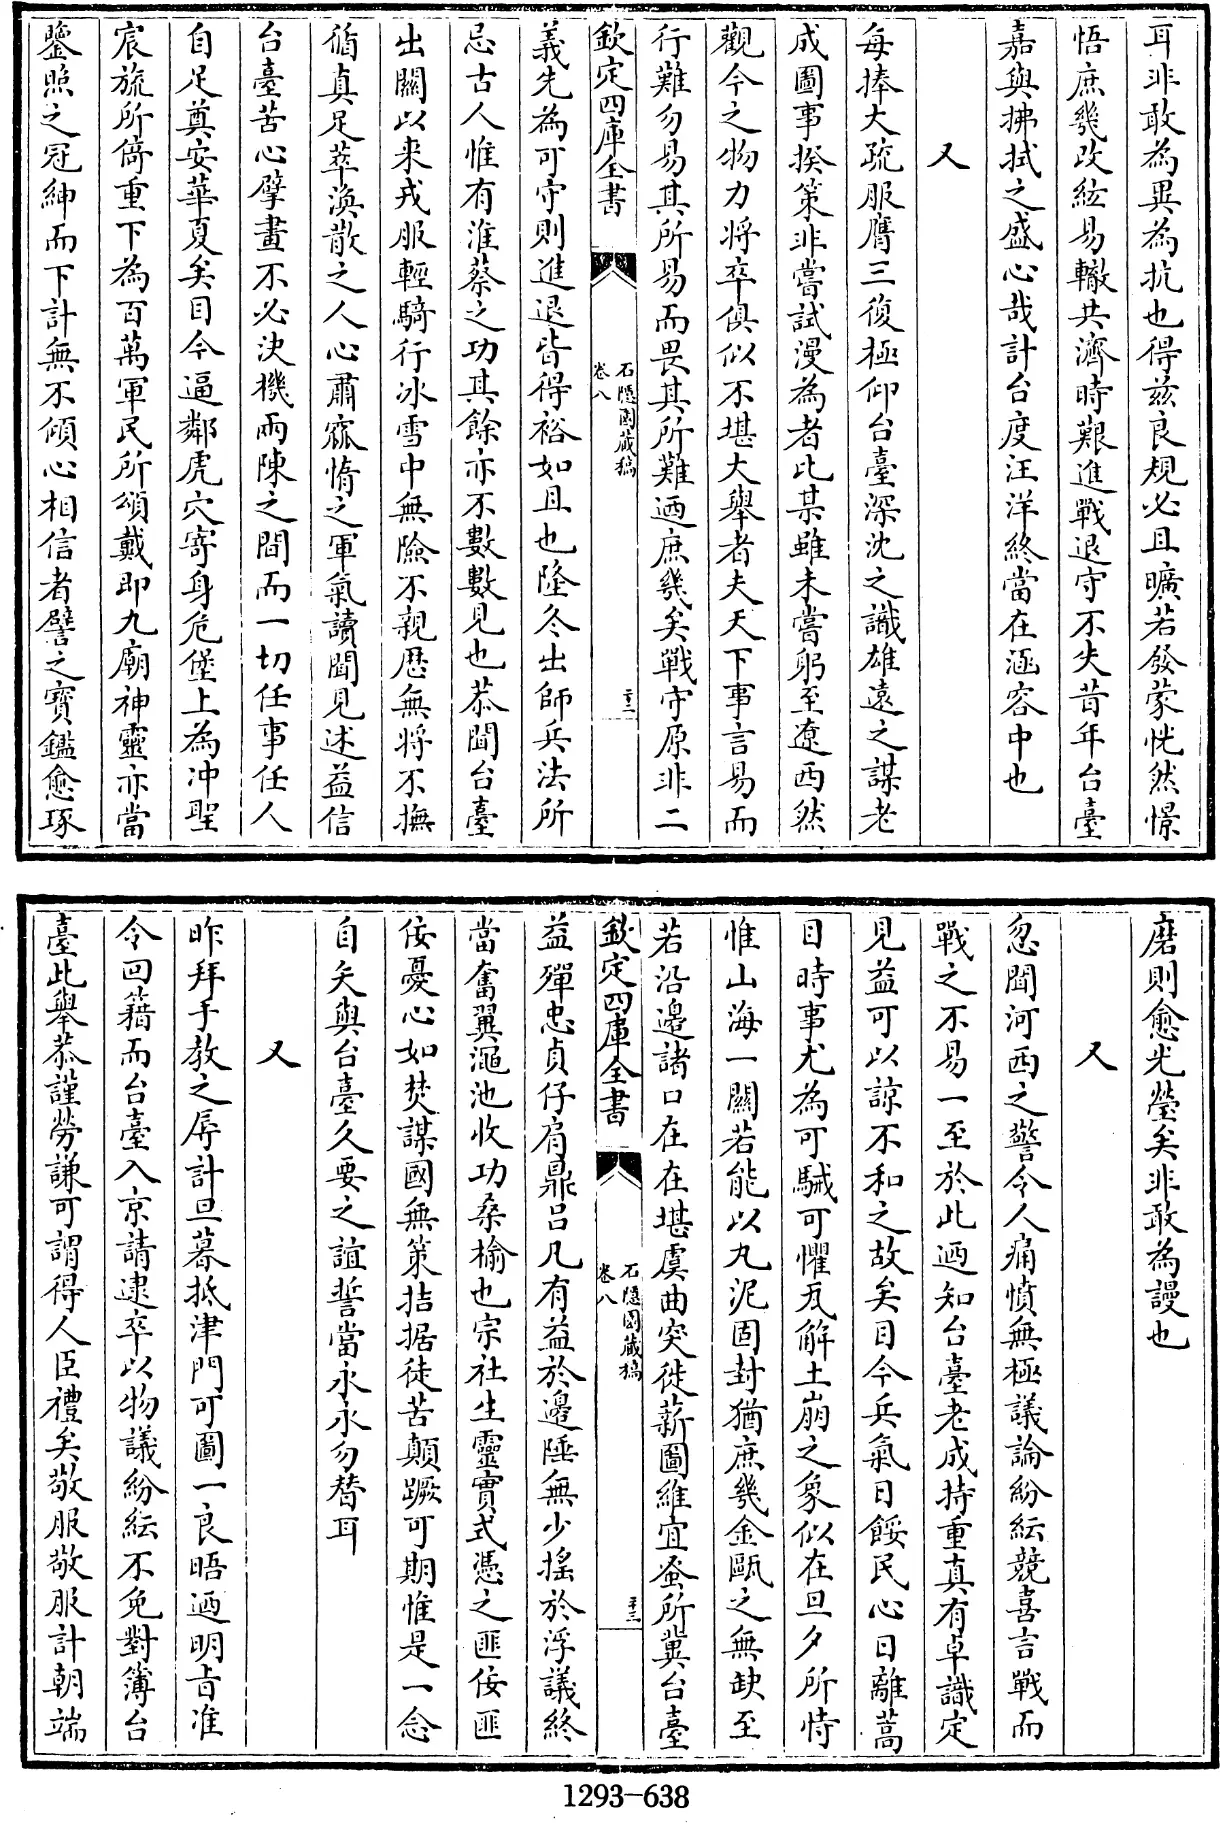 耳非敢為異為抗也得兹良規必且曠若發蒙恍然憬
悟庶幾改絃易轍共濟時艱進戰退守不失昔年台臺
嘉與拂拭之盛心哉計台度汪洋終當在涵容中也
又
每捧大疏服膺三復極仰台臺深沈之識雄遠之謀老
成圖事揆策非嘗試漫為者比某雖未嘗躬至遼西然
觀今之物力將卒俱似不堪大舉者夫天下事言易而
行難勿易其所易而畏其所難廼庶幾矣戰守原非二
欽定四庫全書
石隱園藏稿
卷八
二十二
義先為可守則進退皆得裕如且也隆冬出師兵法所
忌古人惟有淮蔡之功其餘亦不數數見也恭聞台臺
出關以来戎服輕騎行冰雪中無險不親歷無將不撫
循真足萃渙散之人心肅窳惰之軍氣讀聞見述益信
台臺苦心擘畫不必決機兩陳之間而一切任事任人
自足奠安華夏矣目今逼鄰虎穴寄身危堡上為冲聖
宸旒所倚重下為百萬軍民所頌戴即九廟神靈亦當
鑒照之冠紳而下計無不傾心相信者譬之寶鑑愈琢
磨則愈光瑩矣非敢為謾也
又
忽聞河西之警令人痛憤無極議論紛紜競喜言戰而
戰之不易一至於此廼知台臺老成持重真有卓識定
見益可以諒不和之故矣目今兵氣日餒民心日離蒿
目時事尤為可駴可懼瓦解土崩之象似在旦夕所恃
惟山海一關若能以丸泥固封猶庶幾金甌之無缺至
若沿邊諸口在在堪虞曲突徙薪圖維宜蚤所冀台臺
欽定四庫全書
石隱園藏稿
卷八
二十三
益殫忠貞仔肩鼎呂凡有益於邊陲無少搖於浮議終
當奮翼澠池收功桑榆也宗社生靈實式憑之匪佞匪
佞憂心如焚謀國無策拮据徒苦顛蹶可期惟是一念
自矢與台臺久要之誼誓當永永勿替耳
又
昨拜手教之辱計旦暮抵津門可圖一良晤廼明旨准
令回籍而台臺入京請逮卒以物議紛紜不免對簿台
臺此舉恭謹勞謙可謂得人臣禮矣敬服敬服計朝端
1293-638